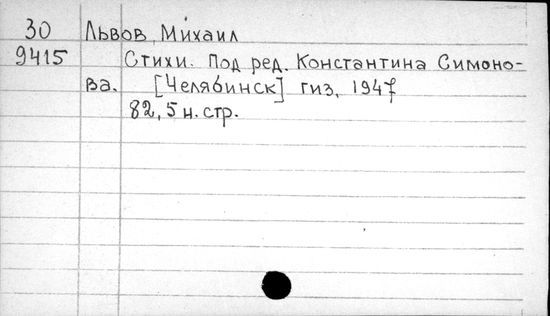 30 Львов, Михаил
9415 Стихи. Под ред. Константина Симоно-
ва. [Челябинск] гиз, 1947
82, 5 н. стр.